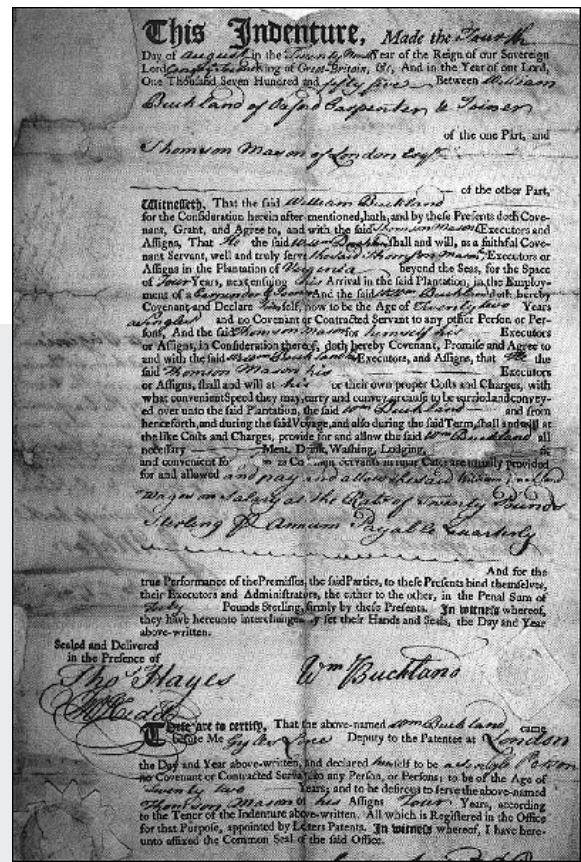 This Indenture, Made the Fourth
Day of August in the Twenty Ninth Year of the Reign of our Sovereign
Lord George King of Great-Britain, &c. And in the Year of our Lord,
One Thousand Seven Hundred and fifty five Between William
Buckland of Oxford Carpenter & Joiner
of the one Part, and
Thomson Mason of London Esqr.
of the other Part,
Witnesseth, That the said William Buckland
for the Consideration herein after-mentioned, hath, and by these Presents doth Cove-
nant, Grant, and Agree to, and with the said Thomson Mason Executors and
Assigns, That He the said Wm Buckland shall and will, as a faithful Cove-
nant Servant, well and truly serve the said Thomson Mason, Executors or
Assigns in the Plantation of Virginia beyond the Seas, for the Space
of Four Years, next ensuing his Arrival in the said Plantation, in the Employ-
ment of a Carpenter & Joiner And the said Wm Buckland doth hereby
Covenant and Declare himself, now to be the Age of Twenty two Years
a Single and no Covenant or Contracted Servant to any other Person or Per-
sons, And the said Thomson Mason for himself his Executors
or Assigns, in Consideration thereof, doth hereby Covenant, Promise and Agree to
and with the said Wm Buckland Executors, and Assigns, that He the
said Thomson Mason his Executors
or Assigns, shall and will at his or their own proper Costs and Charges, with
what convenient Speed they may, carry and convey or cause to be carried and convey-
ed over unto the said Plantation, the said Wm Buckland and from
henceforth, and during the said Voyage, and also during the said Term, shall and will at
the like Costs and Charges, provide for and allow the said Wm Buckland all
necessary Meat, Drink, Washing, Lodging,
and convenient for as Servants in such Cases are usually provided
for and allowed and pay and allow the said William Buckland
Wages or Salary at the Rate of Twenty Pounds
Sterling P Annum Payable Quarterly
And for the
true Performance of the Premisses, the said Parties, to these Presents bind themselves,
their Executors and Administrators, the either to the other, in the Penal Sum of
Pounds Sterling, firmly by these Presents. In witness whereof,
they have hereunto interchangeably set their Hands and Seals, the Day and Year
above-written.
Sealed and Delivered
in the Presence of
Tho Hayes
Wm Buckland
These are to certify, That the above-named Wm Buckland came
before Me Deputy to the Patentee at London
the Day and Year above-written, and declared himself to be a Single Person
no Covenant or Contracted Servant to any Person, or Persons; to be of the Age of
Twenty two Years; and to be desirous to serve the above-named
Thomson Mason or his Assigns Four Years, according
to the Tenor of the Indenture above-written. All which is Registered in the Office
for that Purpose, appointed by Letters Patents. In witness whereof, I have here-
unto affixed the Common Seal of the said Office.